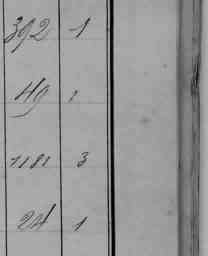 392 1
49 1
1181 3
24 1